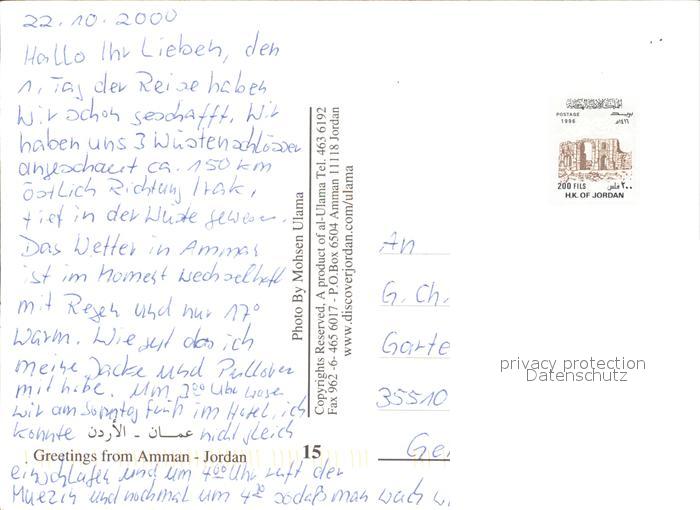 22.10.2000
Hallo Ihr Lieben, den
1. Tag der Reise haben
wir schon geschafft. Wir
haben uns 3 Wüstenschlösser
angeschaut ca. 150 km
östlich Richtung Irak,
tief in der Wüste gewesen.
Das Wetter in Amman
ist im Moment wechselhaft
mit Regen und nur 17°
warm. Wie gut das ich
meine Jacke und Pullover
mit habe. Um 3 00 Uhr waren
wir am Sonntag früh im Hotel, ich
konnte nicht gleich
عمـــان - الأردن
Greetings from Amman - Jordan
15
einschlafen und um 4 00 Uhr ruft der
Muezin und nochmal um 4 30 sodaß man wach w
Photo By Mohsen Ulama
Copyrights Reserved, A product of al-Ulama Tel. 463 6192
Fax 962 -6- 465 6017 - P.O.Box 6504 Amman 11118 Jordan
www.discoverjordan.com/ulama
المملكة الأردنية الهاشمية
POSTAGE بريد
1996
200 FILS فلس ٢٠٠
H.K OF JORDAN
An
G. Ch.
Garte
35510
Ge
privacy protection
Datenschutz